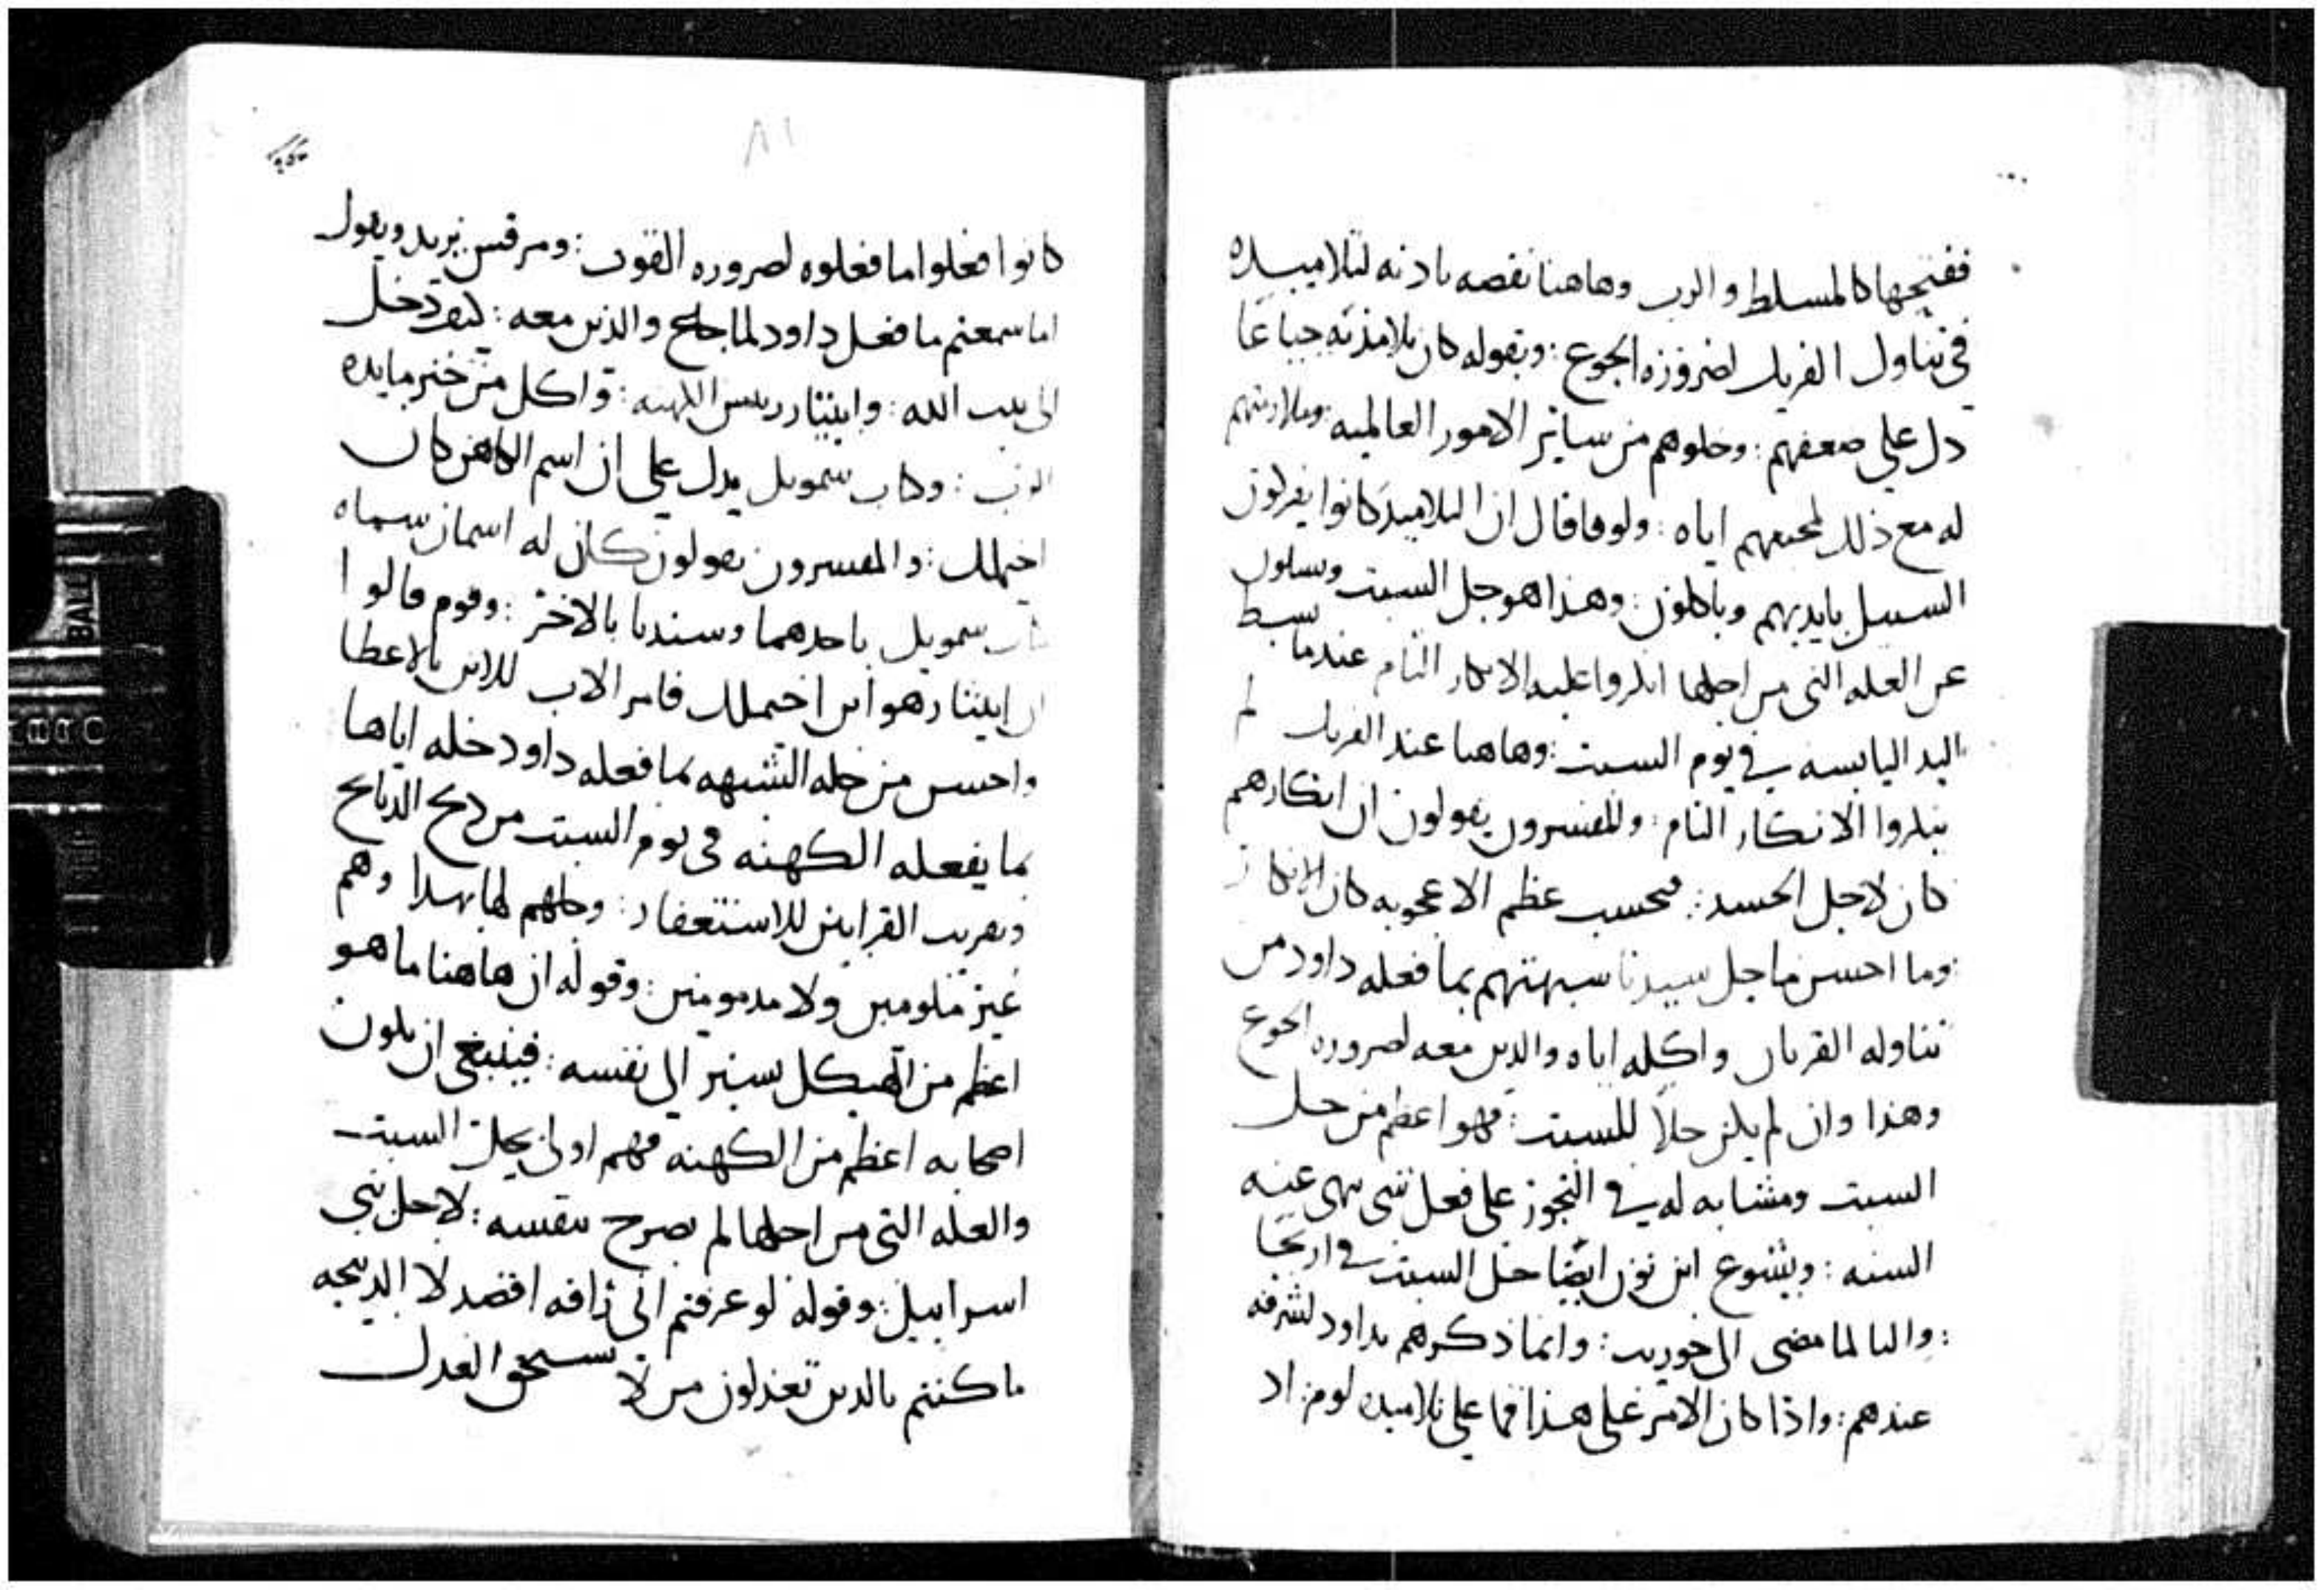 ففتحها كالمسلط والرب وهاهنا نقصه باذنه لتلاميده
في تناول الفريك لضروزه الجوع : وبقوله كان تلامذته جياعا
دل علي ضعفهم : وخلوهم من سائر الامور العالميه وملازمتهم
له مع ذلك لمحبتهم اياه : ولوقا قال ان التلاميد كانوا يفركون
السنبل بايديهم وياكلون : وهذا هو حل السبت وسالون
عن العله التي من اجلها انكروا عليه الانكار التام عندما بسط
اليد اليابسه في يوم السبت : وهاهنا عند الفريك لم
ينكروا الانكار التام : والمفسرون يقولون ان انكارهم
كان لاجل الحسد : فحسب عظم الاعجوبه كان الانكار
وما احسن ما حل سيدنا شبهتهم بما فعله داود من
تناوله القربان واكله اياه والدين معه لضروره الجوع
وهذا وان لم يكن حلا للسبت : فهو اعظم من حل
السبت ومشابه له في التجوز علي فعل شي نهي عنه
السنه : ويشوع ابن نون ايضا حل السبت في اريحا
: واليا لما مضى الي حوريب : وانما ذكرهم بداود لشرفه
عندهم : واذا كان الامر على هذا فما علي تلاميده لوم : اد
٨١
كانوا فعلوا ما فعلوه لضروره القوت : ومرقس يزيد ويقول
اما سمعتم ما فعل داود لما جاع والذين معه : كيف دخل
الى بيت الله : وابيثار رييس الكهنه : واكل من خبز مايده
الرب : وكتاب سمويل يدل علي ان اسم الكاهن كان
اخيملك : والمفسرون يقولون كان له اسمان سماه
كتاب سمويل باحدهما وسيدنا بالاخر : وقوم قالوا
ان ابيثار هو ابن اخيملك فامر الاب للابن بالاعطا
واحسن من حله الشبهه بما فعله داود حله اياها
بما يفعله الكهنه في يوم السبت من دبح الدبايح
وتقريب القرابين للاستغفار : وحلهم لها بهدا وهم
غير ملومين ولا مدمومين : وقوله ان هاهنا ما هو
اعظم من الهيكل يشير الي نفسه : فينبغي ان يكون
اصحابه اعظم من الكهنه فهم اولى بحل السبت
والعله التي من اجلها لم يصرح بنفسه : لاجل بني
اسراييل : وقوله لو عرفتم اني الرافه اقصد لا الدبيحه
ما كنتم بالدين تعذلون من لا يستحق العدل